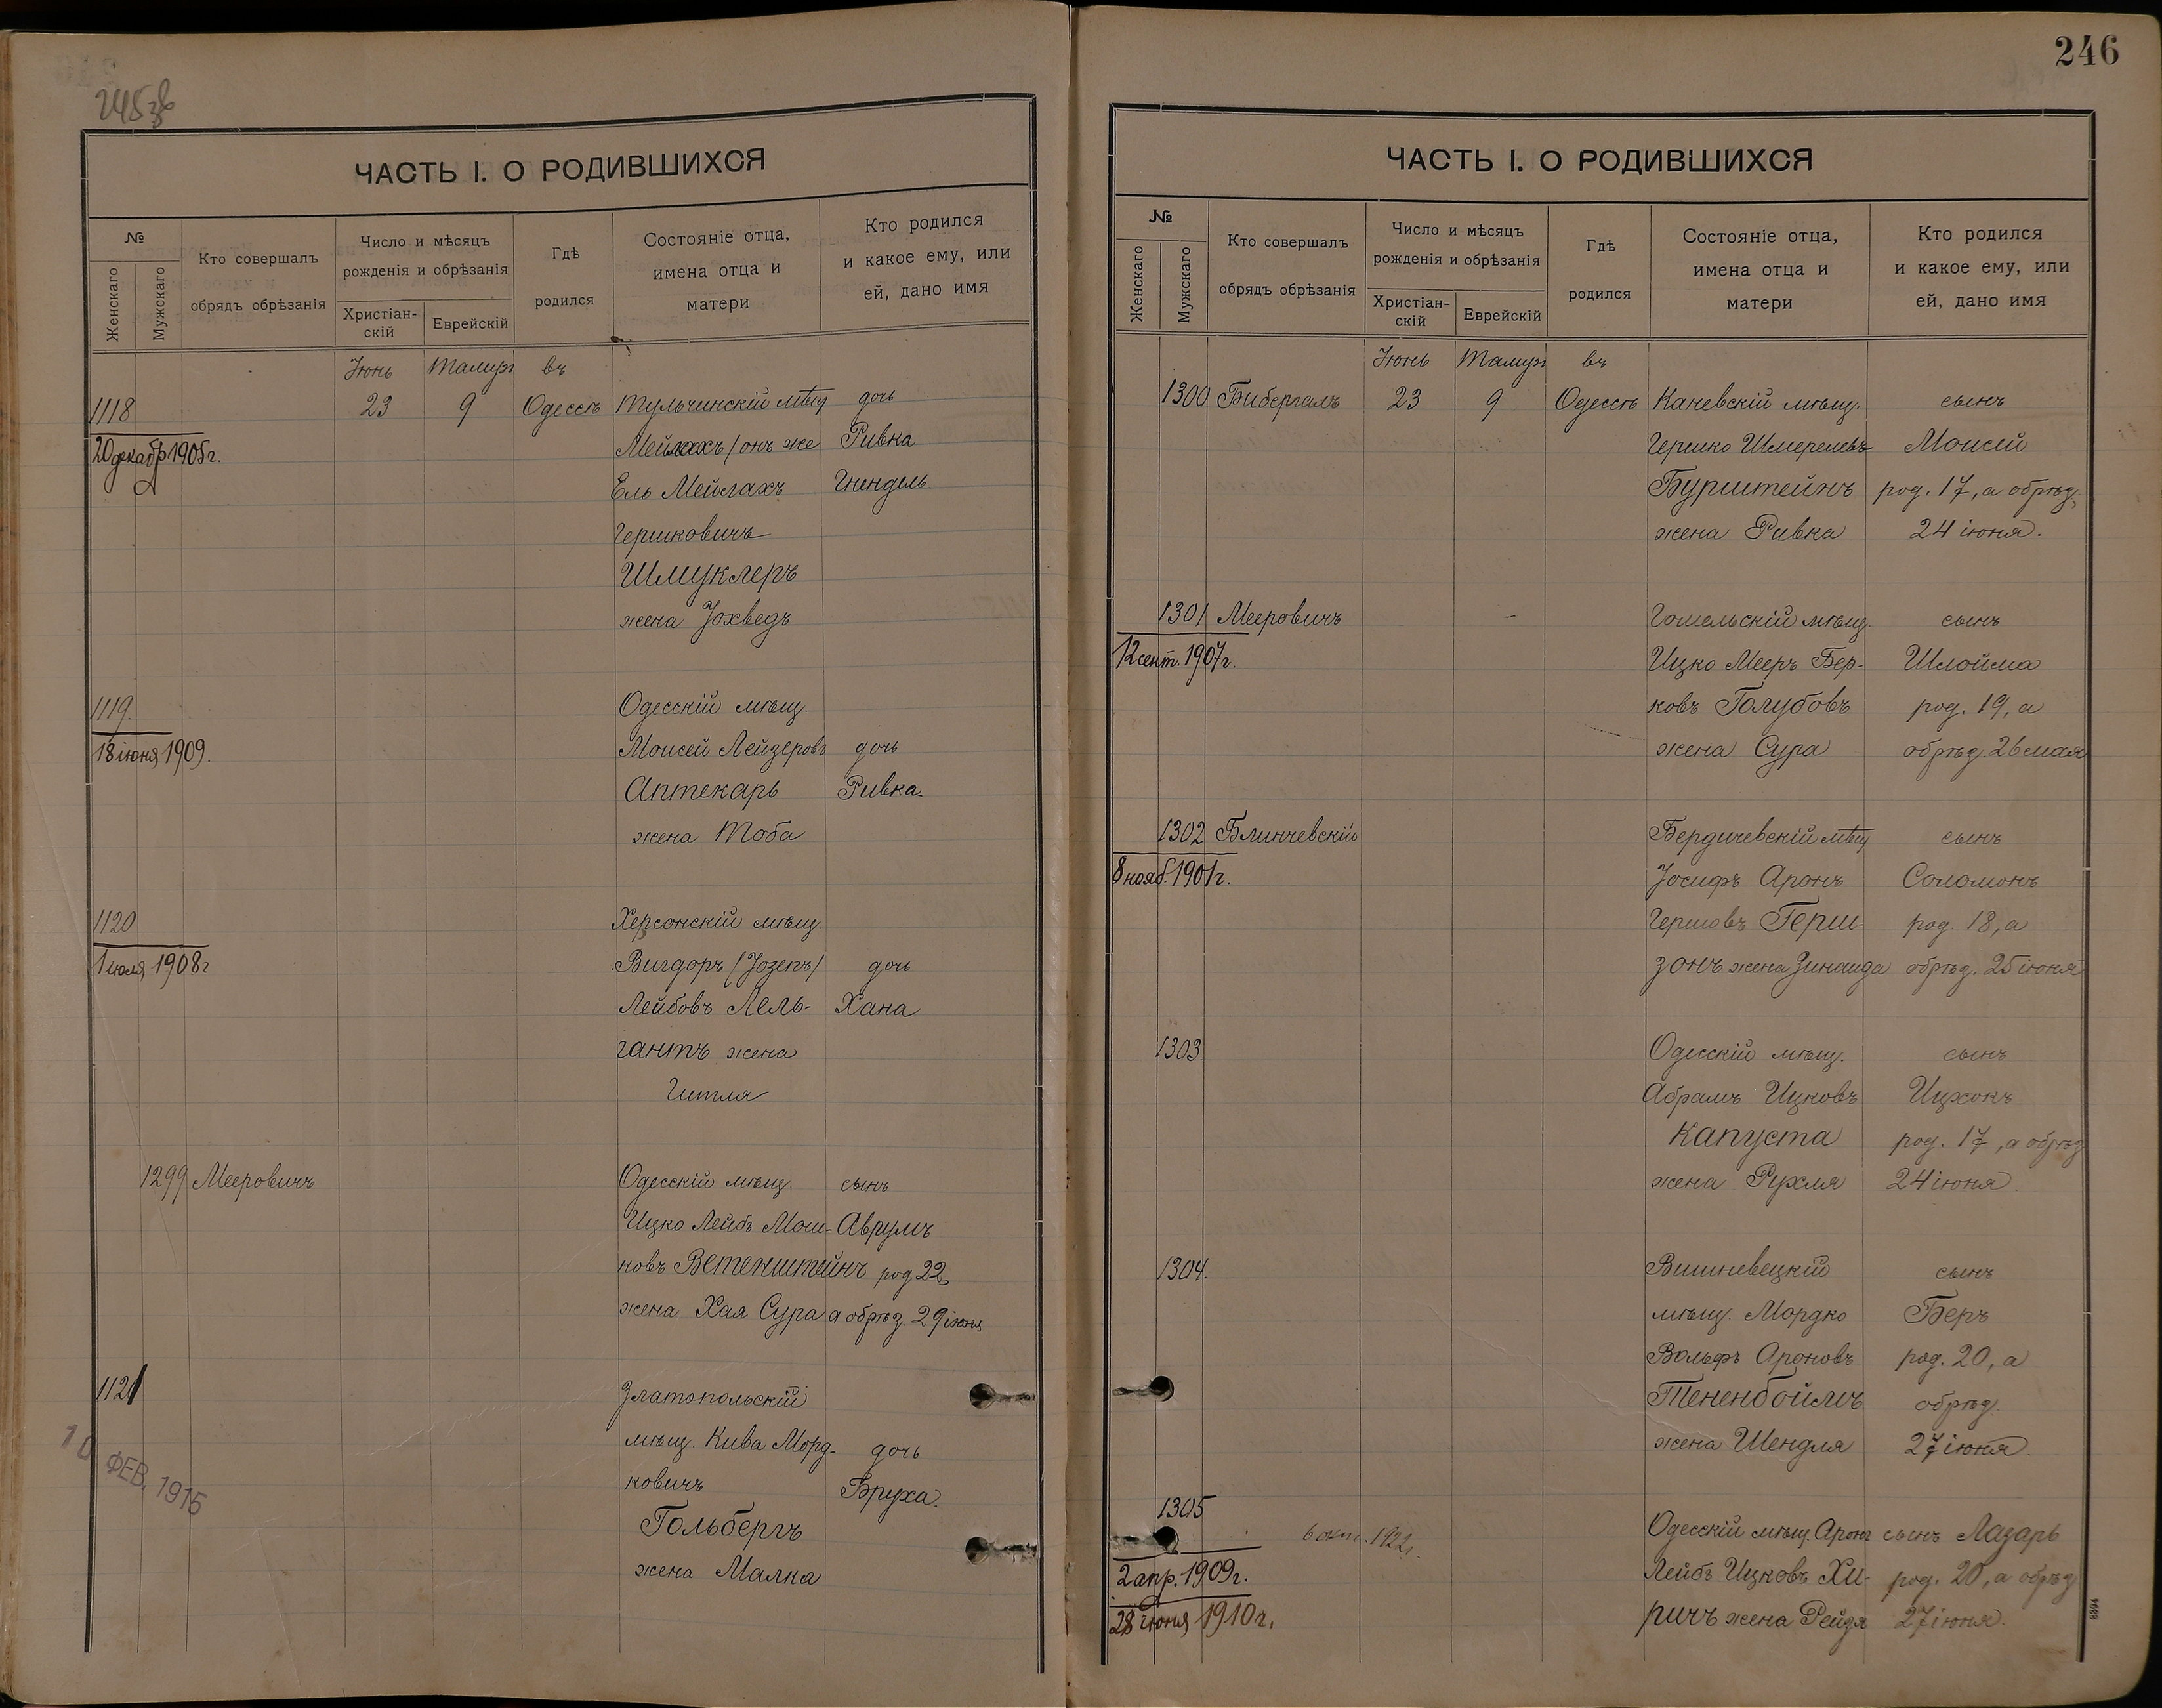 245 зв
ЧАСТЬ I. О РОДИВШИХСЯ
№
Женскаго
Мужскаго
Кто совершалъ
обрядъ обрѣзанія
Число и мѣсяцъ
рожденія и обрѣзанія
Христіан-
скій
Еврейскій
Гдѣ
родился
Состояніе отца,
имена отца и
матери
Кто родился
и какое ему, или
ей, дано имя
Іюнь Тамуз въ
1118 23 9 Одессѣ Тульчинскій мѣщ дочь
20 декабр 1905 г. Мейлахъ (онъ же Ривка
Ель Мейлахъ Гнендель
Гершковичъ
Шмуклеръ
жена Іохведъ
1119. Одесскій мѣщ.
18 іюня 1909. Моисей Лейзеровъ дочь
Аптекарь Ривка.
жена Тоба
1120 Херсонскій мѣщ.
1 іюля 1908 г Вигдоръ (Іозепъ) дочь
Лейбовъ Лель- Хана
гантъ жена
Гитля
1299 Мееровичъ Одесскій мѣщ. сынъ
Ицко Лейбъ Мош- Аврумъ
ковъ Ветенштейнъ род. 22,
жена Хая Сура а обрѣз. 29 іюня
1121 Златопольскій
мѣщ. Кива Морд- дочь
ковичъ Бруха.
10 ФЕВ. 1915
Гольбергъ
жена Малка
246
ЧАСТЬ I. О РОДИВШИХСЯ
№
Женскаго
Мужскаго
Кто совершалъ
обрядъ обрѣзанія
Число и мѣсяцъ
рожденія и обрѣзанія
Христіан-
скій
Еврейскій
Гдѣ
родился
Состояніе отца,
имена отца и
матери
Кто родился
и какое ему, или
ей, дано имя
Іюнь Тамуз въ
1300 Бибергалъ 23 9 Одессѣ Каневскій мѣщ. сынъ
Гершко Шмерелевъ Моисей
Бурштейнъ род. 17, а обрѣз.
жена Ривка 24 іюня.
1301 Мееровичъ Гомельскій мѣщ. сынъ
12 сент. 1907 г. Ицко Мееръ Бер- Шлойма
ковъ Голубовъ род. 19, а
жена Сура обрѣз. 26 мая
1302 Блинчевскій Бердичевскій мѣщ сынъ
8 нояб. 1901 г. Іосифъ Аронъ Соломонъ
Гершовъ Герш- род. 18, а
зонъ жена Зинаида обрѣз. 25 іюня
1303. Одесскій мѣщ. сынъ
Абрамъ Ицковъ Ицхокъ
Капуста род. 17, а обрѣз
жена Рухля 24 іюня.
1304. Вишневецкій сынъ
мѣщ. Мордко Беръ
Вольфъ Ароновъ род. 20, а
Тененбоймъ обрѣз.
жена Шендля 27 іюня.
1305 Одесскій мѣщ. Аронъ сынъ Лазарь
6 окт. 1922.
2 апр. 1909 г. Лейбъ Ицковъ Хи- род. 20, а обрѣз
28 іюня 1910 г. ричъ жена Рейзя 27 іюня.
8394